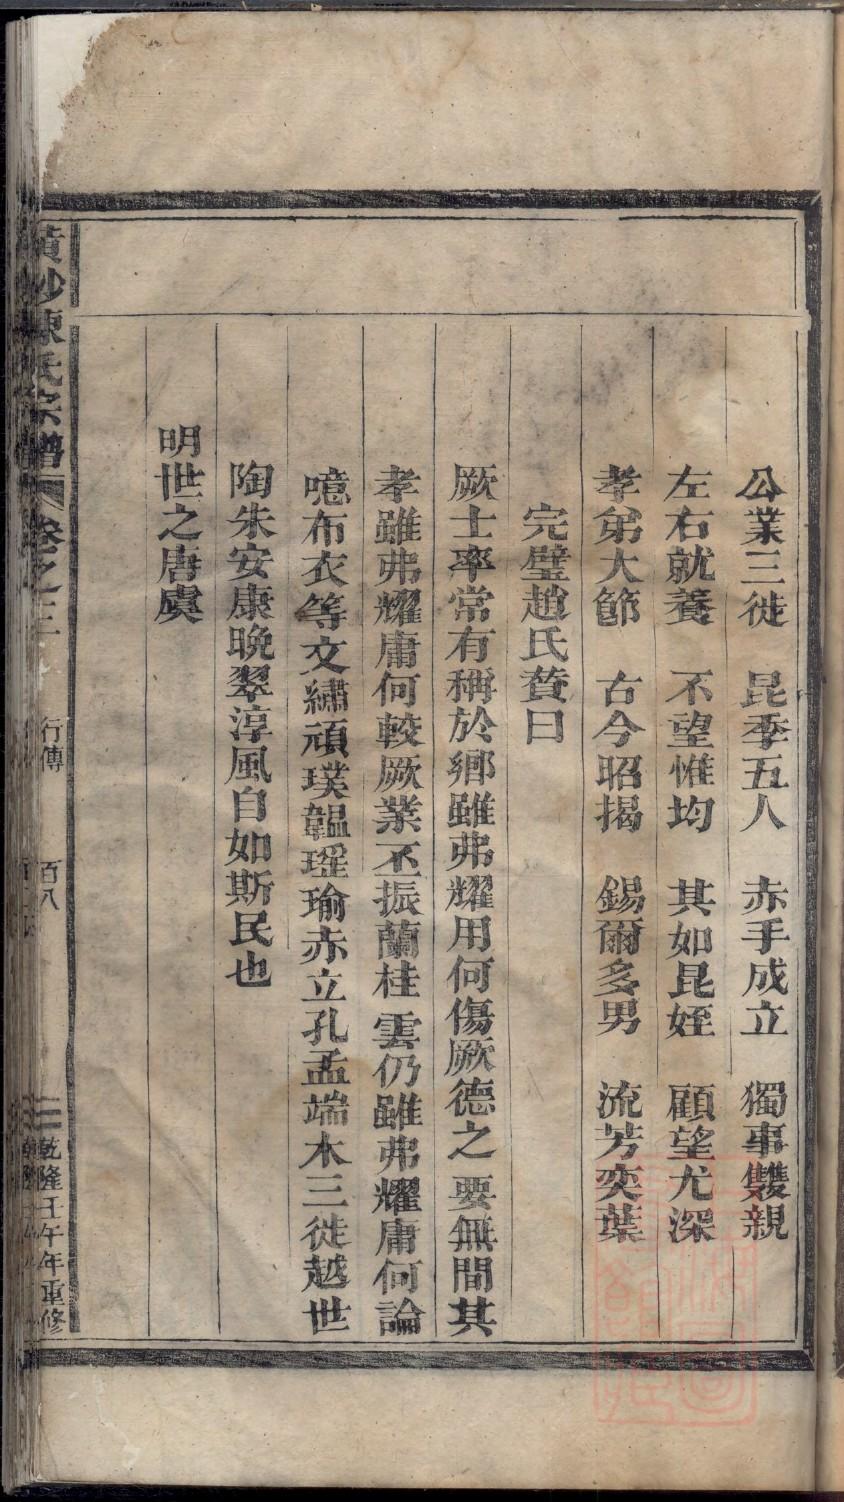 公業三徙 昆季五人 赤手成立 獨事雙親
左右就養 不望惟均 其如昆姪 顧望尤深
孝弟大節 古今昭揭 錫爾多男 流芳奕葉
完璧趙氏贊曰
厥士率常有稱於鄉雖弗耀用何傷厥德之要無間其
孝雖弗耀庸何較厥業丕振蘭桂雲仍雖弗耀庸何論
噫布衣等文繡頑璞韞瑶瑜赤立孔孟端木三徙越世
陶朱安康晩翠淳風自如斯民也
明世之唐虞
黃沙陳氏宗譜 卷之三 行傳 百八 乾隆壬午年重修